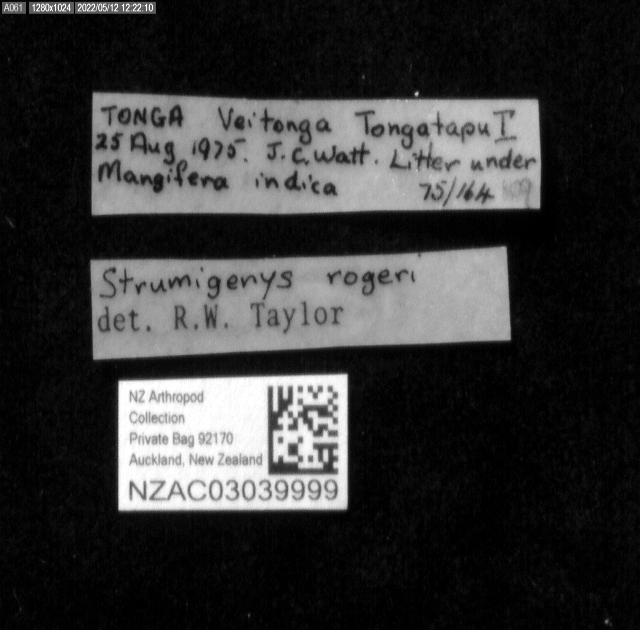 A061 1280x1024 2022/05/12 12:22:10
TONGA Veitonga Tongatapu I
25 Aug 1975. J.C. Watt. Litter under
Mangifera indica 75/164
Strumigenys rogeri
det. R.W. Taylor
NZ Arthropod
Collection
Private Bag 92170
Auckland, New Zealand
NZAC03039999